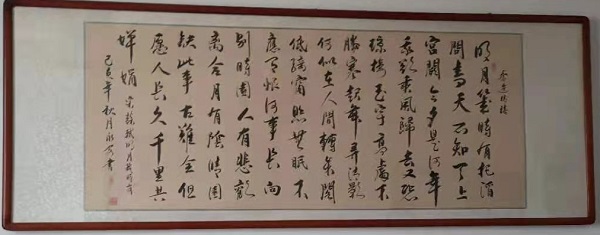 明月幾時有把酒
問青天不知天上
宮闕今夕是何年
我欲乘風歸去又恐
瓊樓玉宇高處不
勝寒起舞弄清影
何似在人間轉朱閣
低綺窗照無眠不
應有恨何事長向
別時圓人有悲歡
離合月有陰晴圓
缺此事古難全但
願人長久千里共
嬋娟 宋蘇軾明月幾時有
年秋月 書